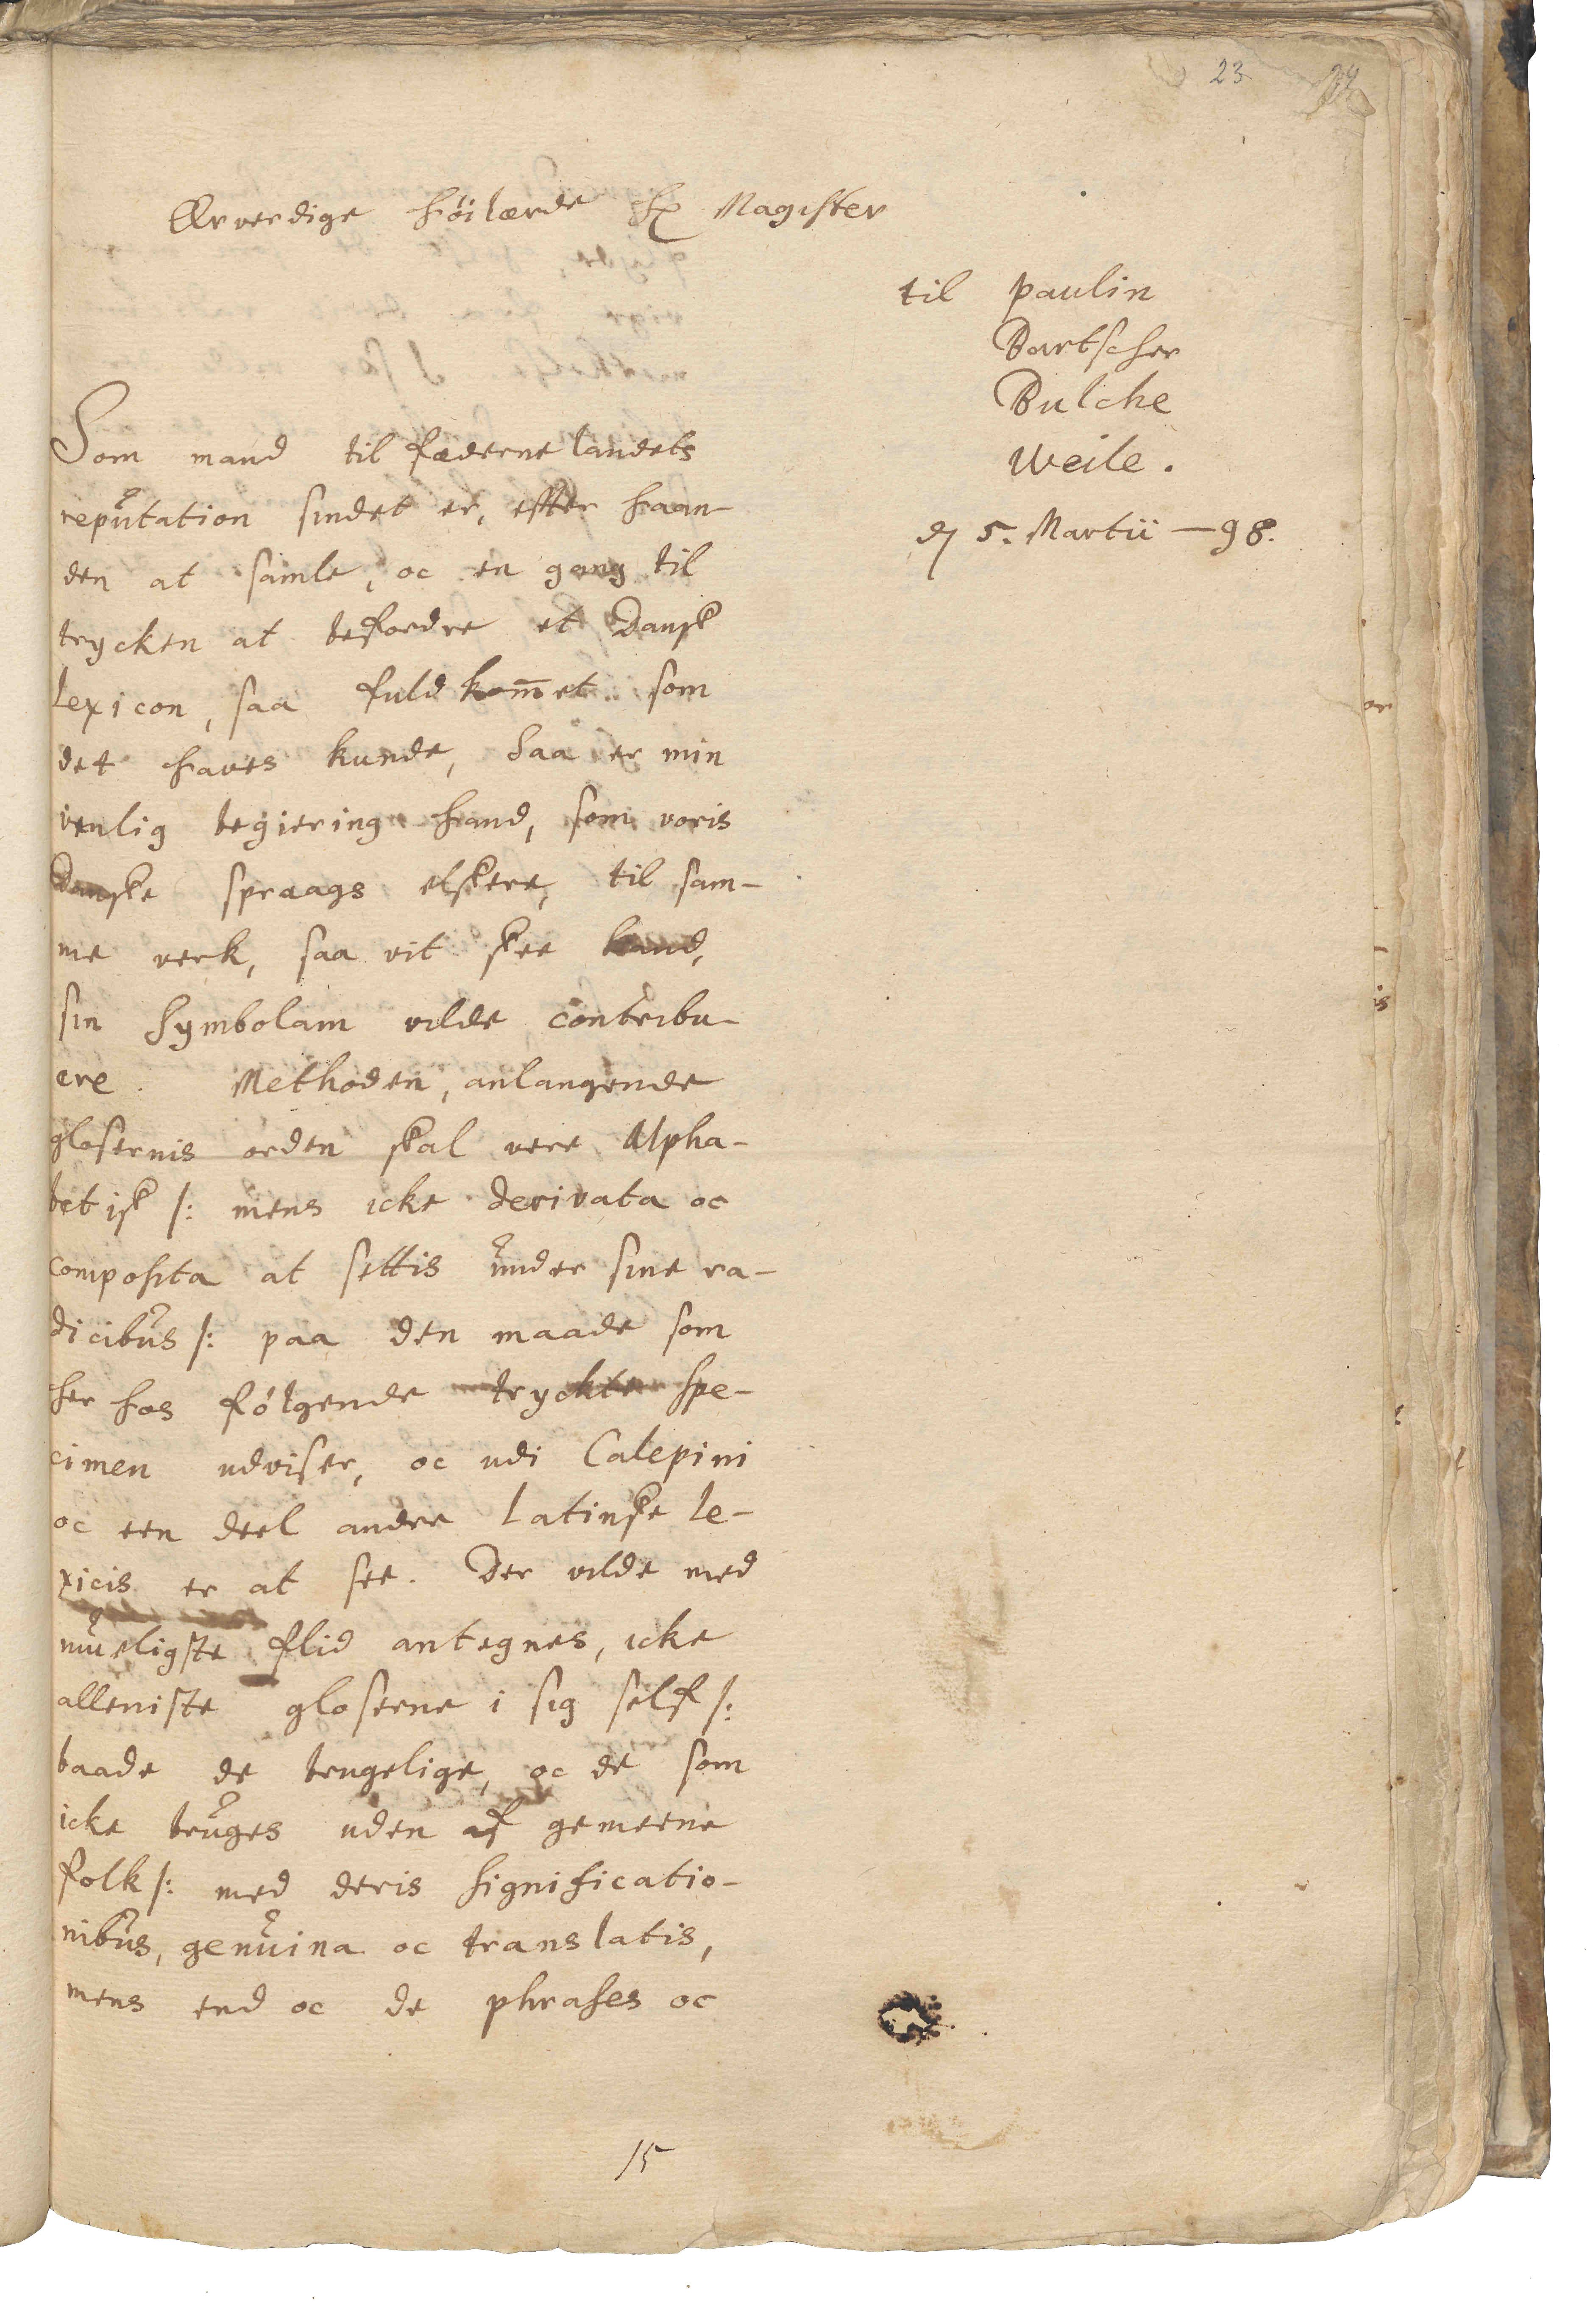 23
Ærverdige Høilærde Hr Magister
til Paulin
Bartscher
Bulche
Weile.
d 5. Martii — 98.
Som mand til fæderne landets
reputation sindet er, effter haan-
den at samle, oc en gang til
trycken at befordre et Dansk
Lexicon, saa fuldkom̅et som
det haves kunde, Saa er min
venlig begiering hand, som voris
Danske spraags elskere, til sam-
me verk, saa vit skee kand,
sin Symbolam vilde contribu-
ere. Methoden, anlangende
glosernis orden skal vere Alpha-
betisk /: mens icke derivata oc
composita at settis under sine ra-
dicibus /: paa den maade som
her hos følgende tryckte spe-
cimen udviser, oc udi Calepini
oc een deel andre Latinske Le-
xicis er at see. Der vilde med
mueligste flid antegnes, icke
alleniste gloserne i sig self /:
baade de brugelige, oc de som
icke bruges uden af gemeene
folk /: med deris significatio-
nibus, genuina oc translatis,
mens end oc de phrases oc
15